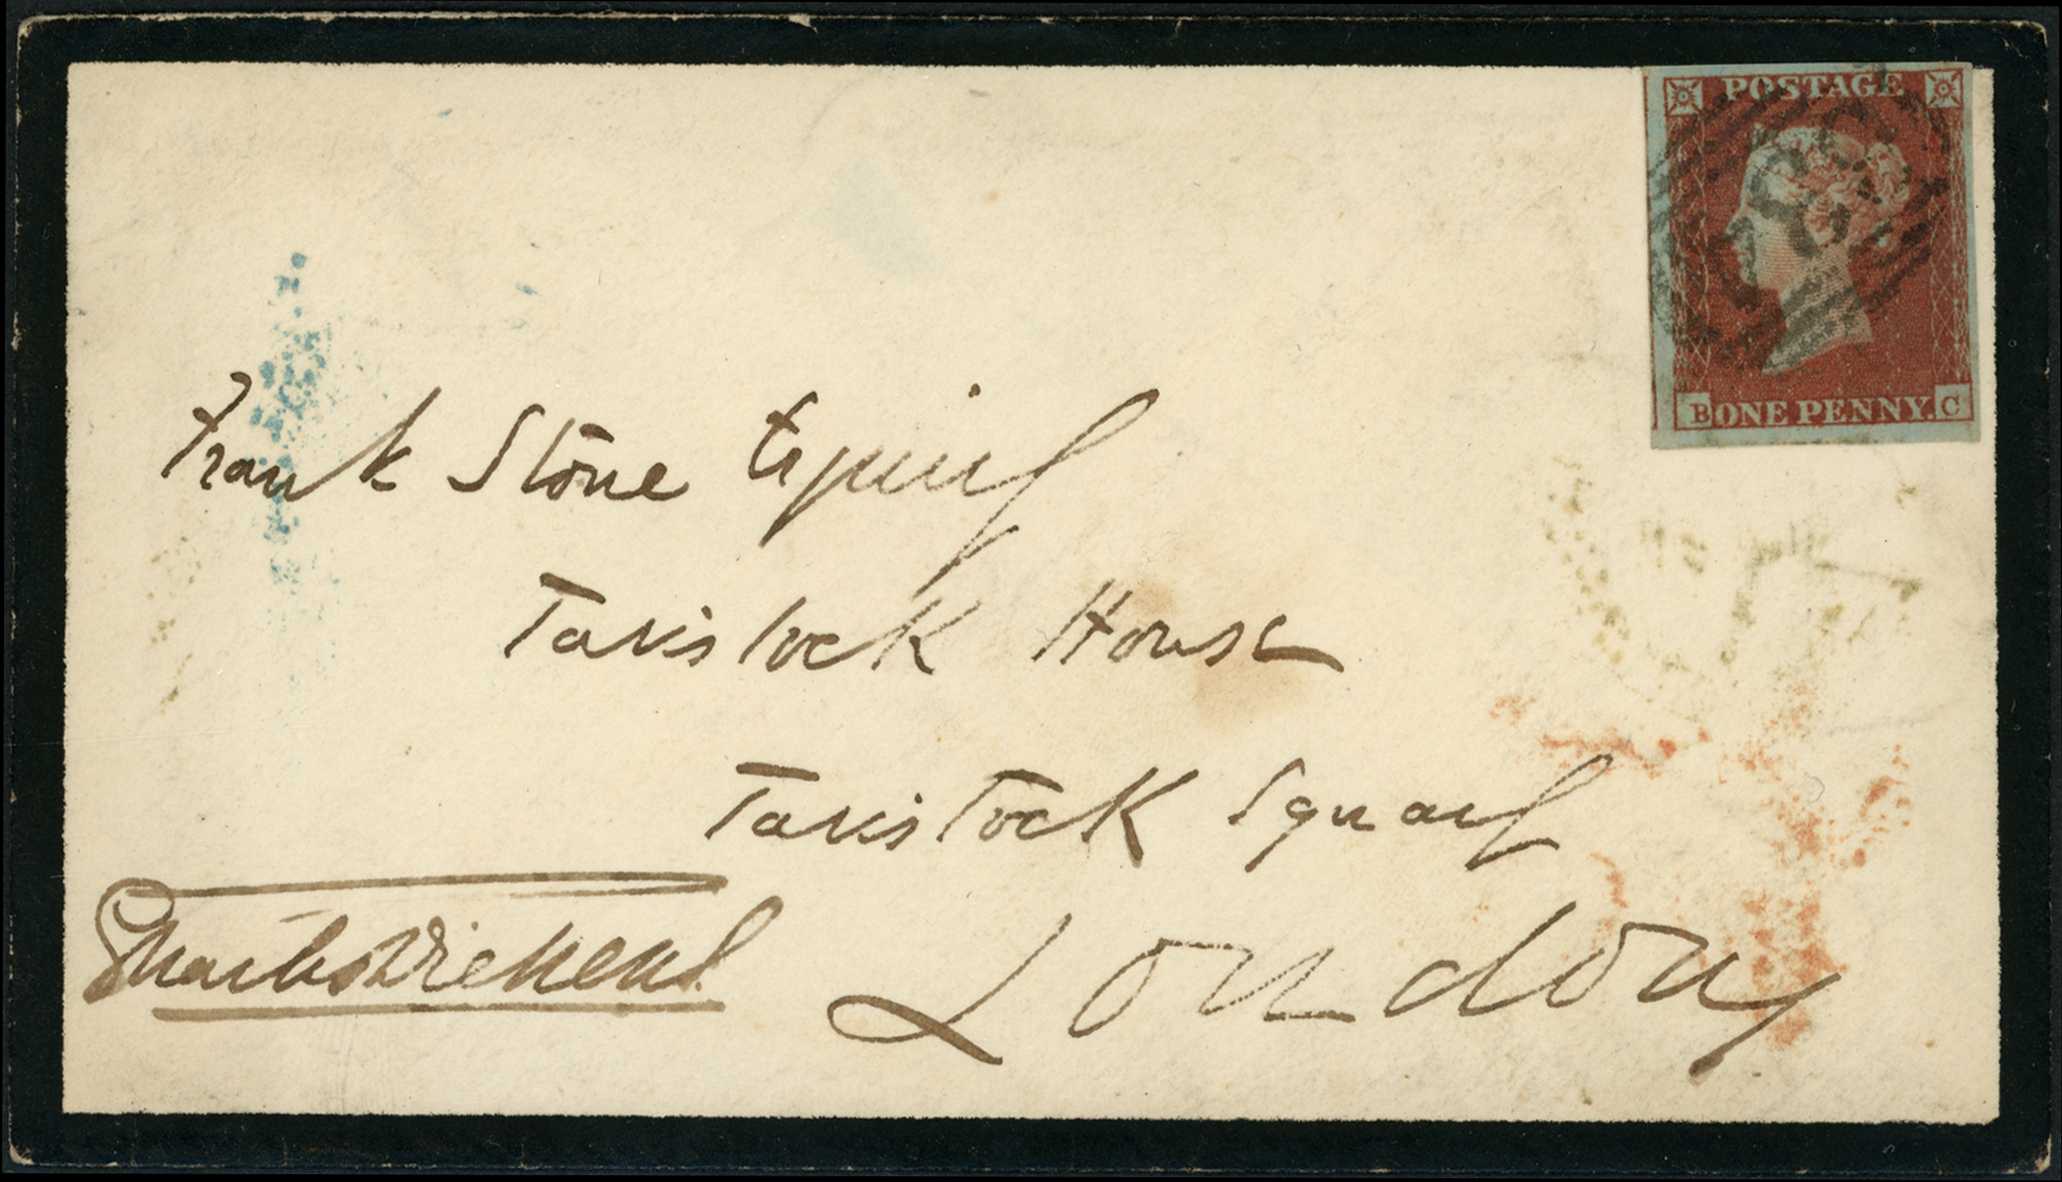 POSTAGE
B ONE PENNY. C
Frank Stone Esquire
Tavistock House
Tavistock Square
Charles Dickens
London